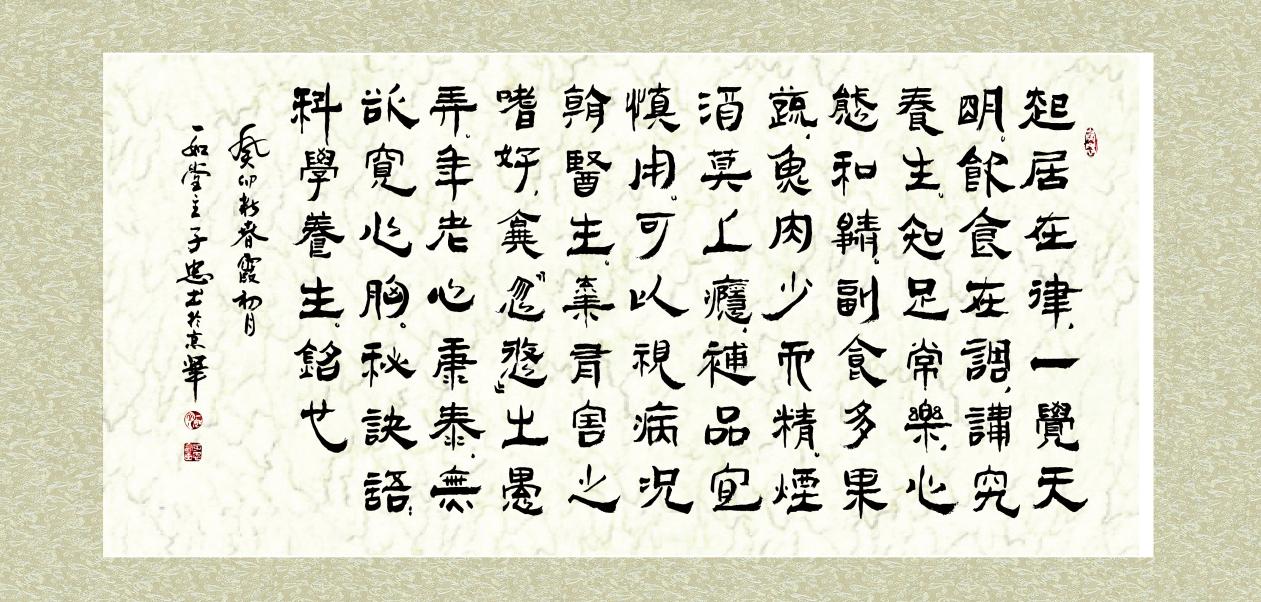 起居在律,一覺天
明。飲食在調,講究
養生。知足常樂,心
態和。副食多果
蔬,魚肉少而精。煙
酒莫上癮,補品宜
慎用。可以視病況
醫生。棄有害之
嗜好,“忽悠”土愚
弄。年老心康泰,無
欲寬心胸。秘訣語:
科學養生。銘也
癸卯新春霞初月
一如堂主子忠書於京華